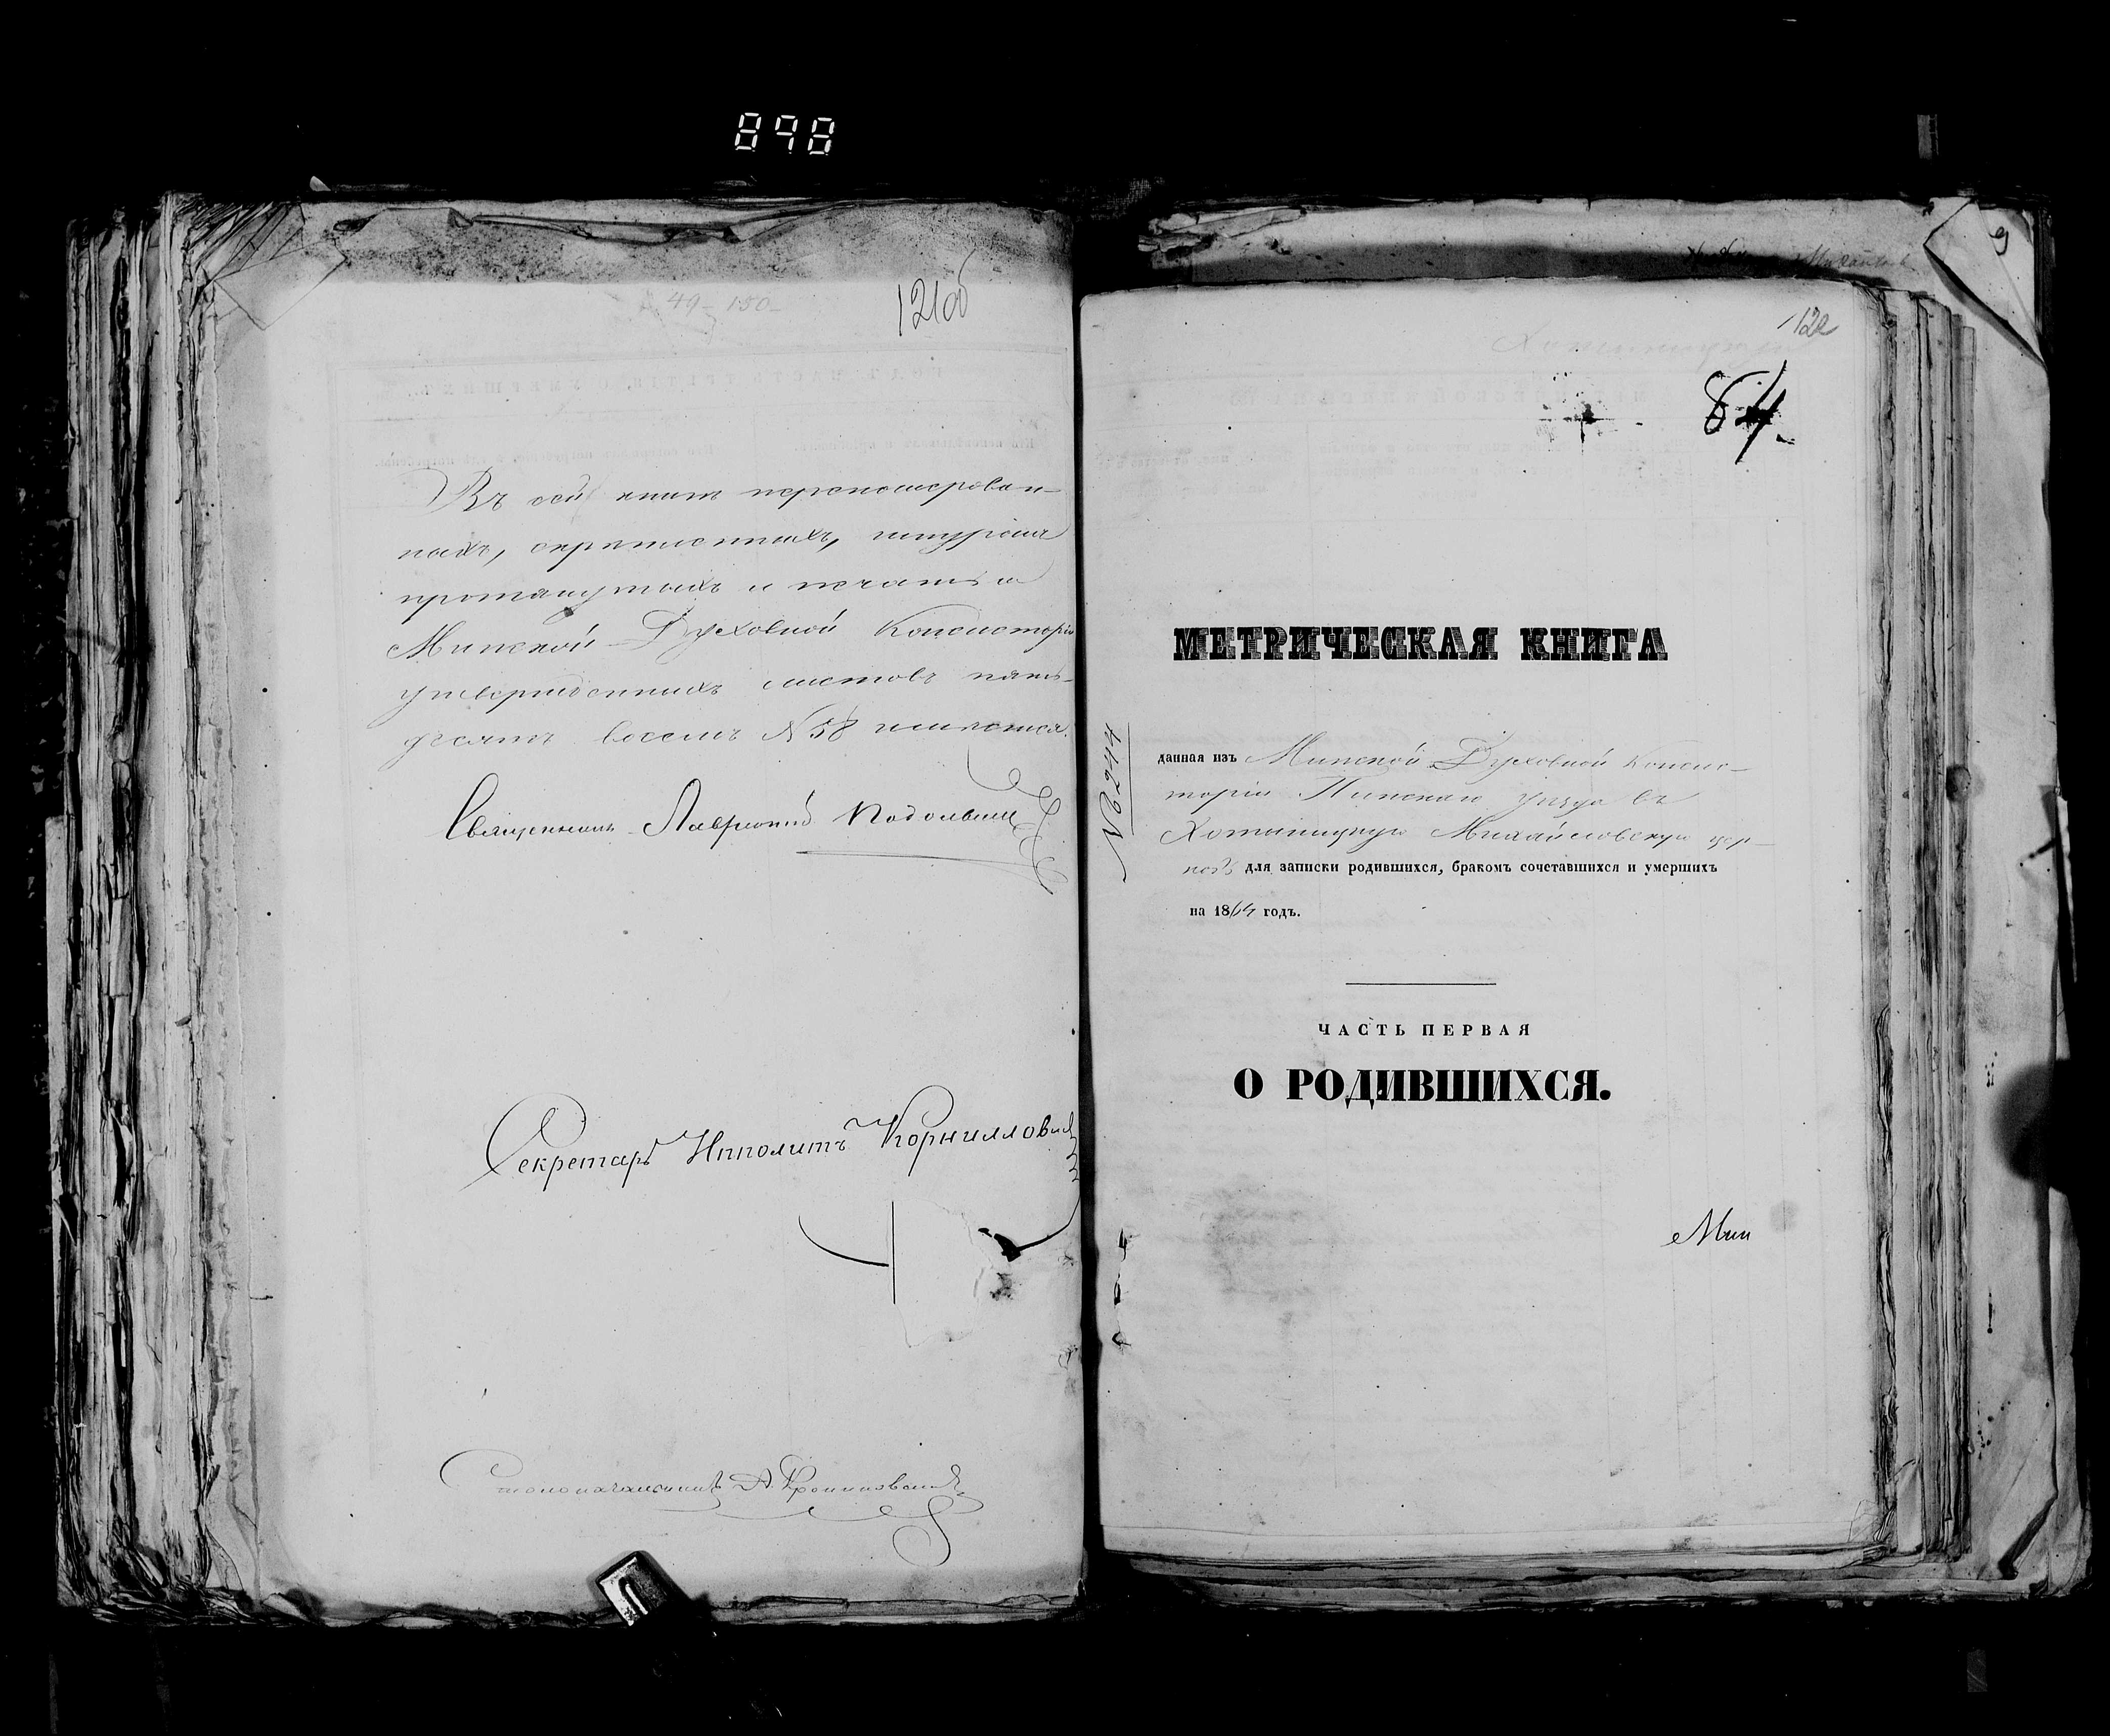 898
121об
49-150-
Въ сей книгѣ перенумерован-
ныхъ, скрѣпленныхъ, шнуромъ
протянутыхъ и печатью
Минской Духовной Консисторіи
утвержденныхъ листовъ пять-
десятъ восемь №58 имѣется.
Священникъ Лаврентій
Секретарь Ипполитъ Корнилловичъ
Столоначальникъ А.
9
122
84.
МЕТРИЧЕСКАЯ КНИГА
№6244
данная изъ Минской Духовной Консис-
торіи Пинскаго уѣзда въ
Хотыницкую Михайловскую цер-
ковь для записки родившихся, бракомъ сочетавшихся и умершихъ
на 1864 годъ.
ЧАСТЬ ПЕРВАЯ
О РОДИВШИХСЯ.
Мин